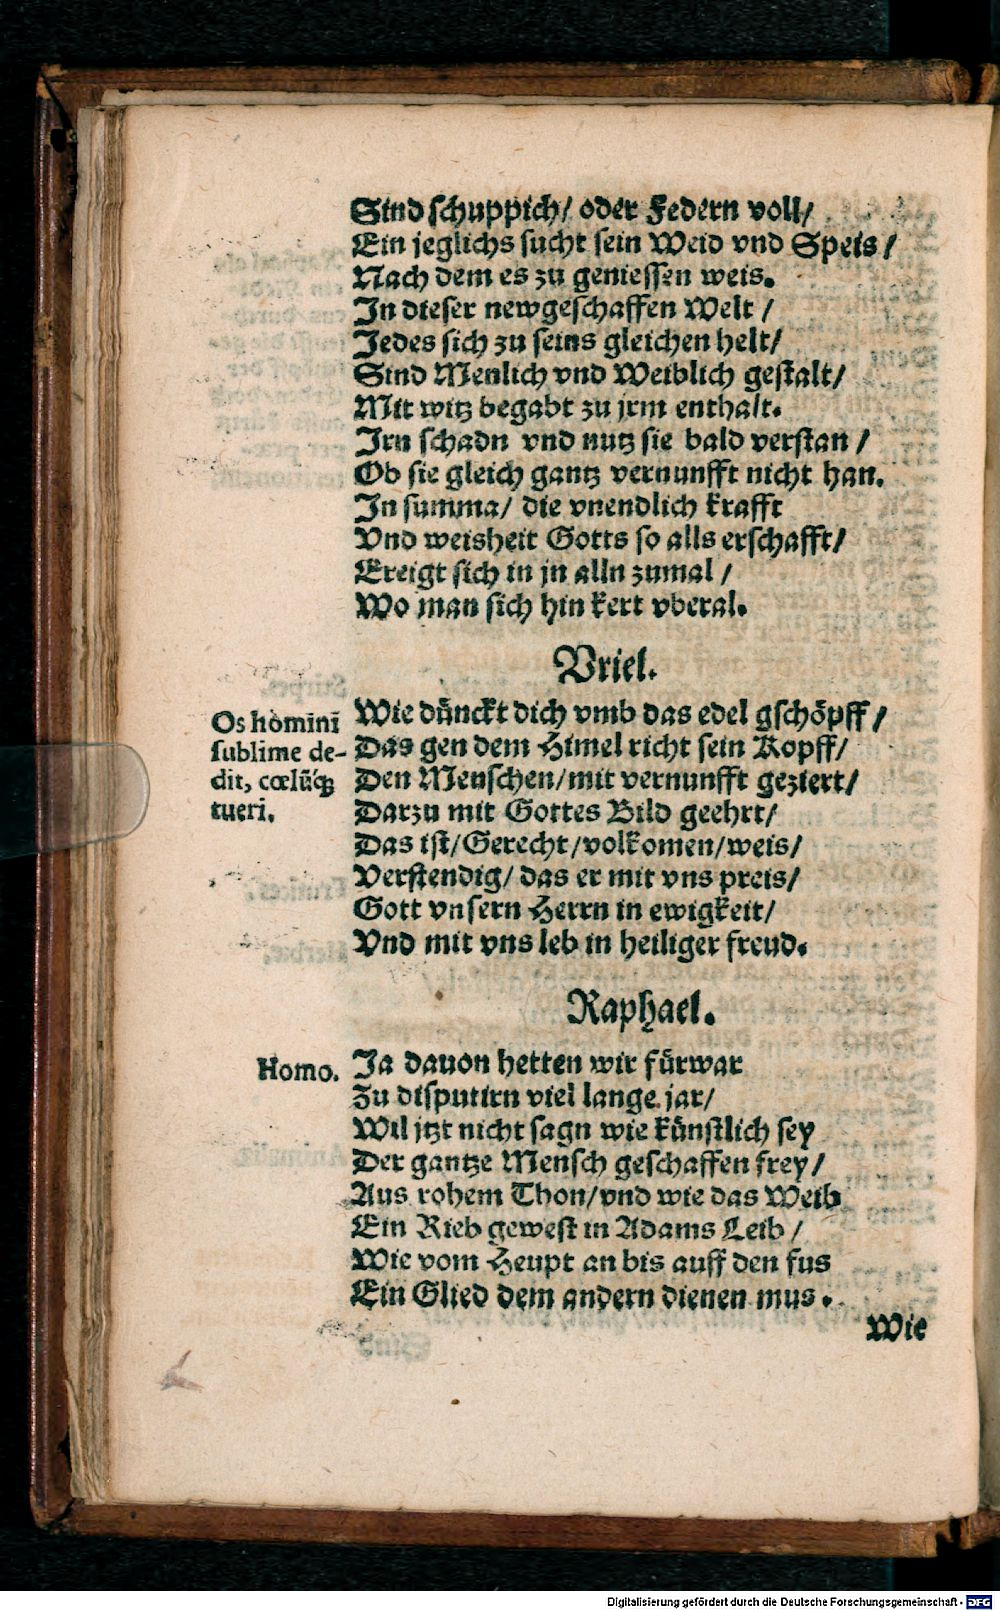 Sind schuppich/ oder Federn voll/
Ein jeglichs sucht sein Weid vnd Speis/
Nach dem es zu geniessen weis.
In dieser newgeschaffen Welt/
Jedes sich zu seins gleichen helt/
Sind Menlich vnd Weiblich gestalt/
Mit witz begabt zu jrm enthalt.
Irn schadn vnd nutz sie bald verstan/
Ob sie gleich gantz vernunfft nicht han.
In summa/ die vnendlich krafft
Vnd weisheit Gotts so alls erschafft/
Ereigt sich in jn alln zumal/
Wo man sich hin kert vberal.
Vriel.
Os homini
sublime de-
dit, cœlūq́ꝫ
tueri.
Wie dünckt dich vmb das edel gschöpff/
Das gen dem Himel richt sein Kopff/
Den Menschen/mit vernunfft geziert/
Darzu mit Gottes Bild geehrt/
Das ist/Gerecht/volkomen/weis/
Verstendig/ das er mit vns preis/
Gott vnsern Herrn in ewigkeit/
Vnd mit vns leb in heiliger freud.
Raphael.
Homo.
Ja dauon hetten wir fürwar
Zu disputirn viel lange jar/
Wil jtzt nicht sagn wie künstlich sey
Der gantze Mensch geschaffen frey/
Aus rohem Thon/vnd wie das Weib
Ein Rieb gewest in Adams Leib/
Wie vom Heupt an bis auff den fus
Ein Glied dem andern dienen mus.
Wie
Digitalisierung gefördert durch die Deutsche Forschungsgemeinschaft - DFG